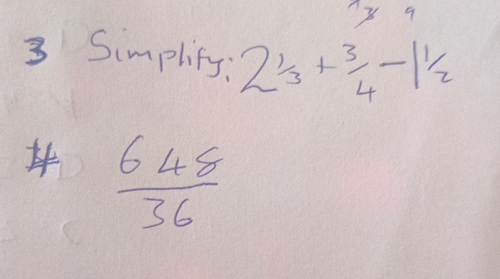 3 Simplify: 2 1/3 + 3/4 - 1 1/2
648
36